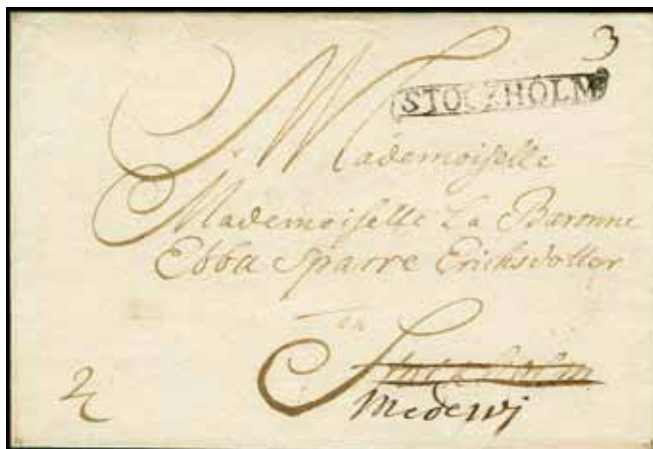 3
STOCKHOLM
Mademoiselle
Mademoiselle La Baronne
Ebba Sparre Ericksdotter
Stockholm
Medewi